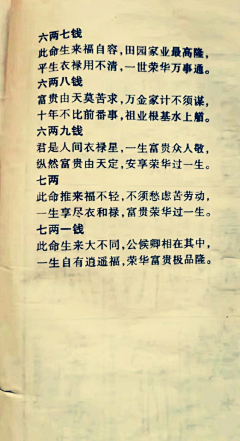 六两七钱
此命生来福自容,田园家业最高隆,
平生衣禄用不清,一世荣华万事通。
六两八钱
富贵由天莫苦求,万金家计不须谋,
十年不比前番事,祖业根基水上艏。
六两九钱
君是人间衣禄星,一生富贵众人敬,
纵然富贵由天定,安享荣华过一生。
七两
此命推来福不轻,不须愁虑苦劳动,
一生享尽衣和禄,富贵荣华过一生。
七两一钱
此命生来大不同,公候卿相在其中,
一生自有逍遥福,荣华富贵极品隆。